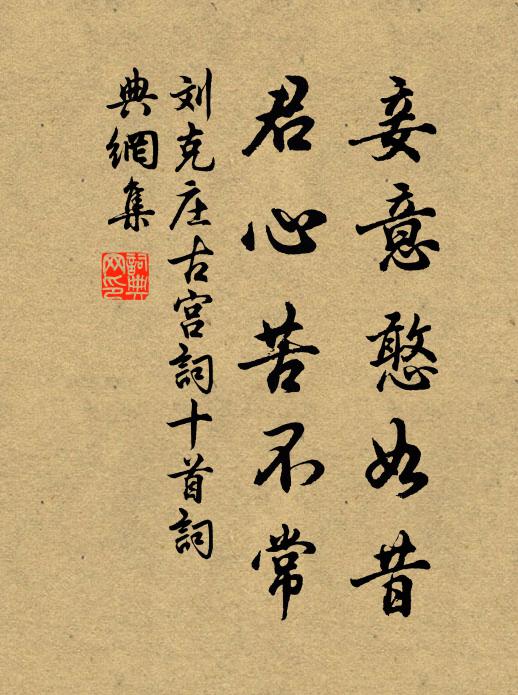 妾意憨如昔
君心苦不常
刘克庄古宫詞十首詞
典網集
詞典网印